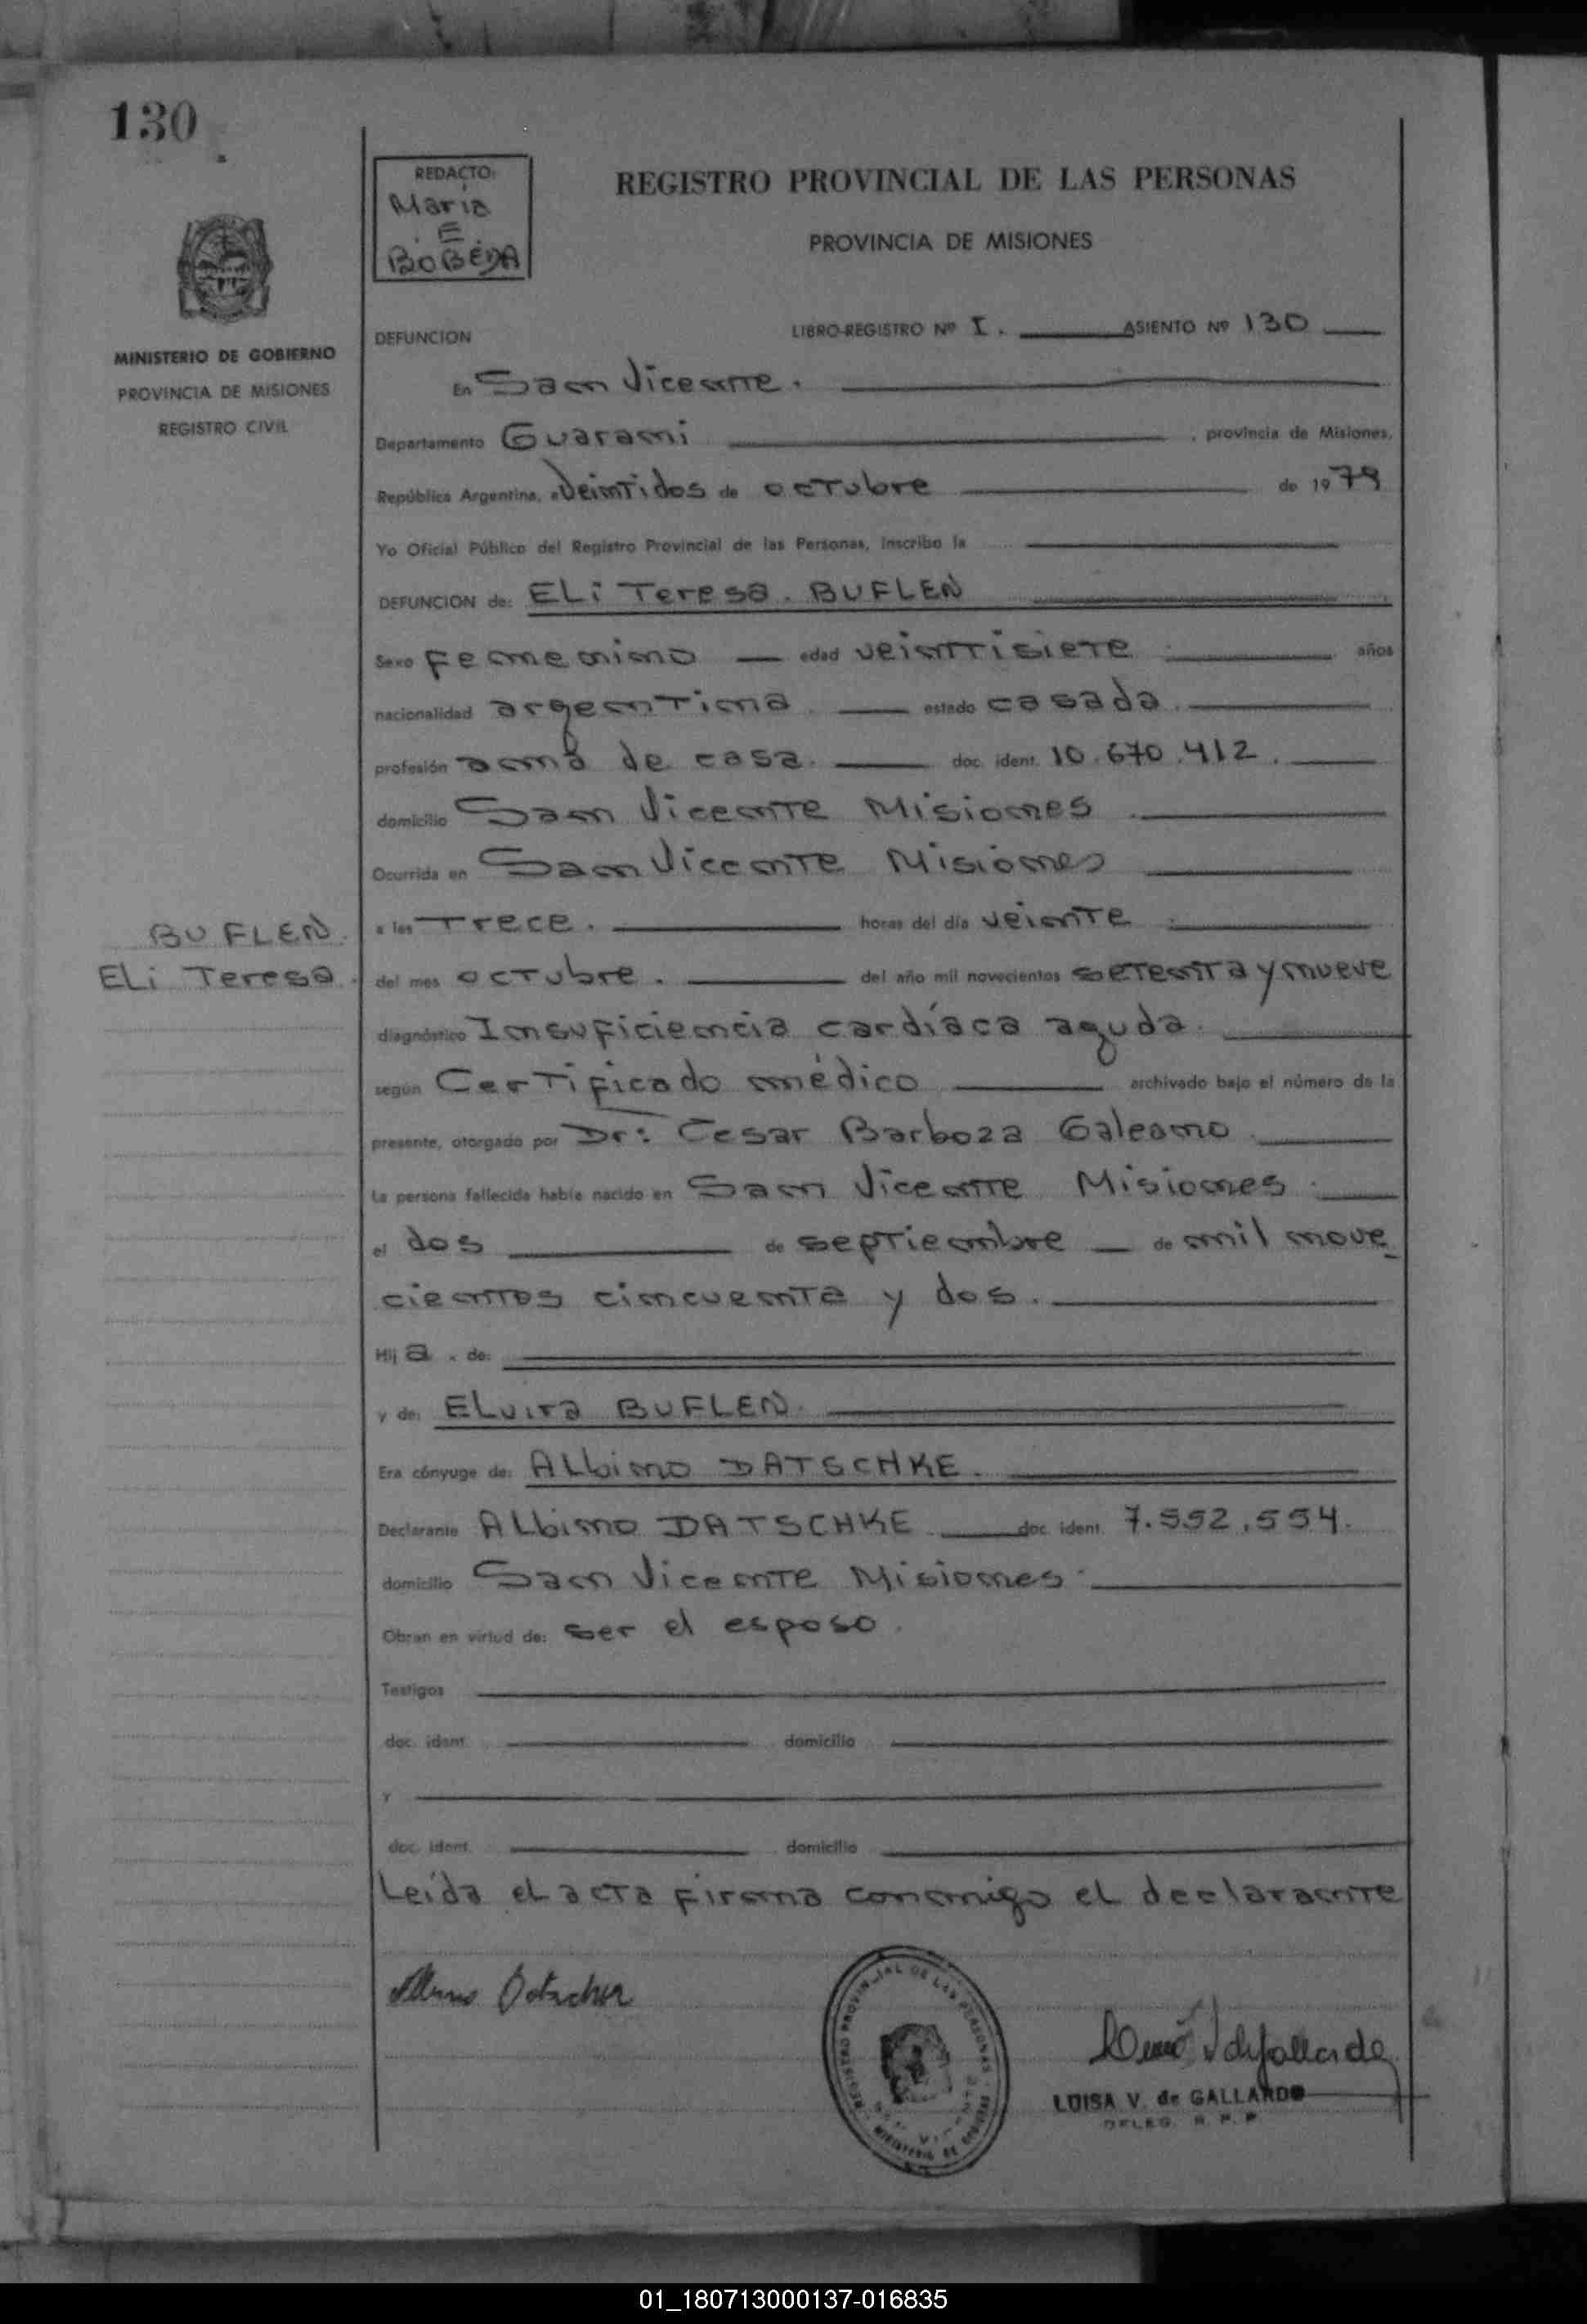 130
REDACTO:
Maria
E.
BOBEDA
REGISTRO PROVINCIAL DE LAS PERSONAS
PROVINCIA DE MISIONES
MINISTERIO DE GOBIERNO
PROVINCIA DE MISIONES
REGISTRO CIVIL
DEFUNCION LIBRO-REGISTRO Nº I. ASIENTO Nº 130
En San Vicente.
Departamento Guarani , provincia de Misiones,
República Argentina, a Veintidos de octubre de 1979
Yo Oficial Público del Registro Provincial de las Personas, inscribo la
DEFUNCION de: ELi Teresa. BUFLEN
Sexo femenino edad veintisiete años
nacionalidad argentina estado casada.
profesión ama de casa. doc. ident. 10.670.412.
domicilio San Vicente Misiones
Ocurrida en San Vicente Misiones
BUFLEN.
ELi Teresa.
a las Trece. horas del día veinte
del mes octubre. del año mil novecientos setenta y nueve
diagnóstico Insuficiencia cardíaca aguda.
según Certificado médico archivado bajo el número de la
presente, otorgado por Dr: Cesar Barboza Galeano
La persona fallecida había nacido en San Vicente Misiones
el dos de septiembre de mil nove
cientos cincuenta y dos.
Hij a. de:
y de: ELvira BUFLEN.
Era cónyuge de: ALbino DATSCHKE.
Declarante ALbino DATSCHKE doc. ident. 7.552.554.
domicilio San Vicente Misiones
Obran en virtud de: ser el esposo.
Testigos
doc. ident. domicilio
y
doc. ident. domicilio
Leída el acta firma conmigo el declarante
REGISTRO PROVINCIAL DE LAS PERSONAS
LUISA V. de GALLARDO
DELEG. R. P. P
01_180713000137-016835